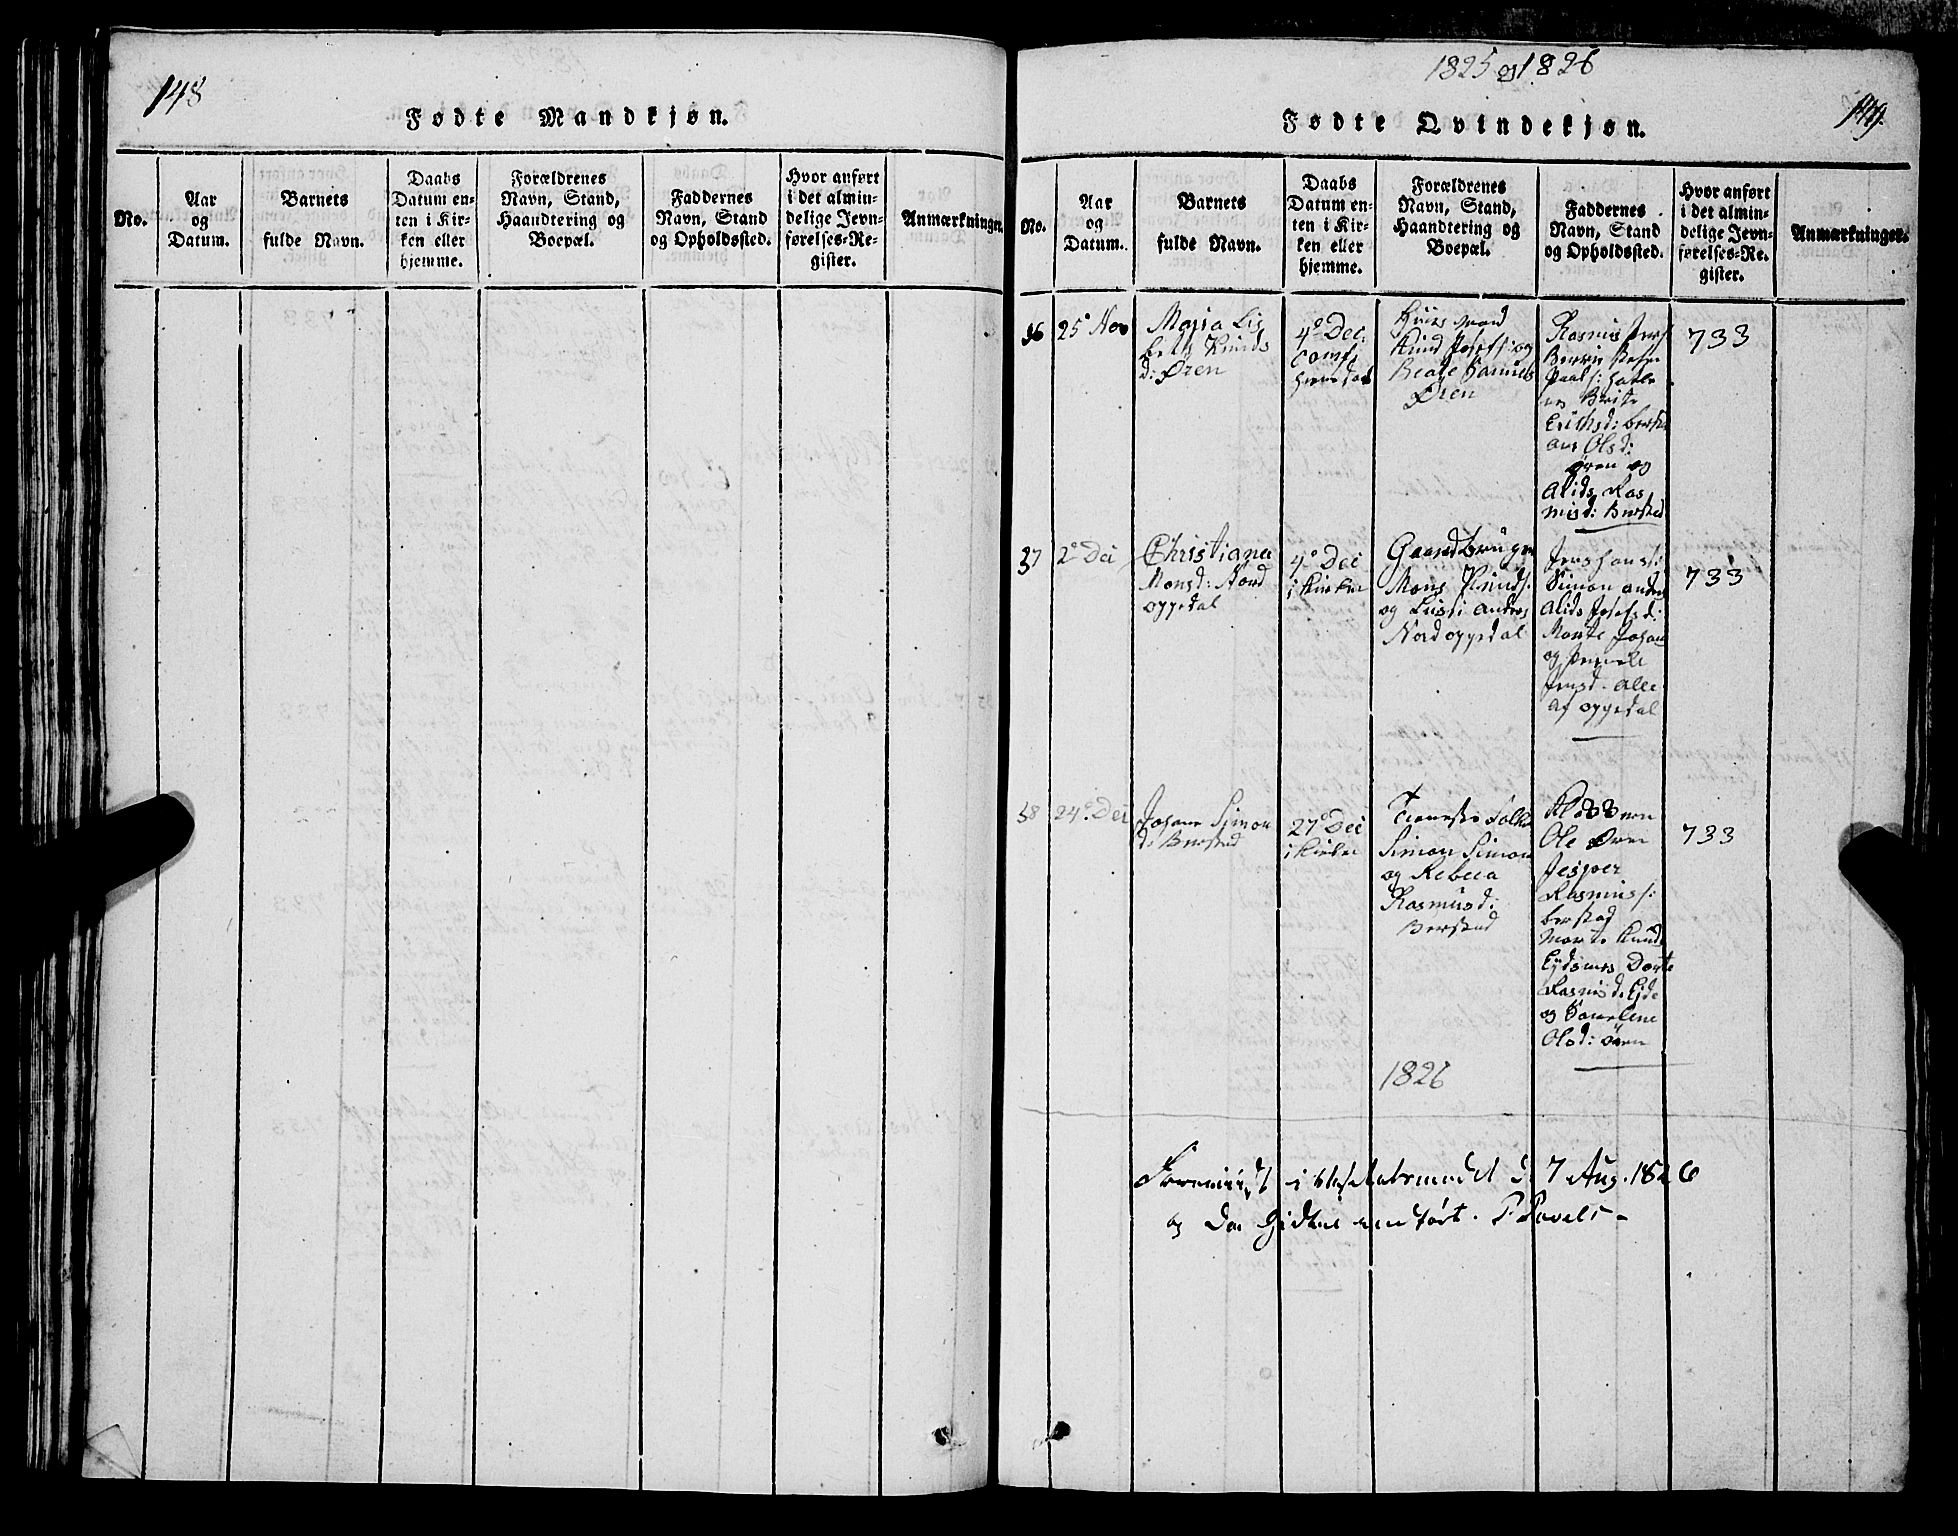 148
Fødte Mandkjøn.
No.
Aar
og
Datum.
Barnets
fulde Navn.
Daabs
Datum en-
ten i Kir-
ken eller
hjemme.
Forældrenes
Navn, Stand,
Haandtering og
Boepæl.
Faddernes
Navn, Stand
og Opholdssted.
Hvor anført
i det almin-
delige Jevn-
førelses-Re-
gister.
Anmærkninger.
1825 og 1826
149.
Fødte Qvindekjøn.
No.
Aar
og
Datum.
Barnets
fulde Navn.
Daabs
Datum en-
ten i Kir-
ken eller
hjemme.
Forældrenes
Navn, Stand,
Haandtering og
Boepæl.
Faddernes
Navn, Stand
og Opholdssted.
Hvor anført
i det almin-
delige Jevn-
førelses-Re-
gister.
Anmærkninger.
36
25 Nov
Maria Lis
beth Knuds
d: Øren
4de Dec.
Conf.
Huusmand
Knud Josefs: og
Beate Samuels
Øren
Rasmus
Paals:
Brite
Erichsd:
Olsd:
øren og
Alids Ras
misd: Berstad
733
37
2de Dec
Christiana
Monsd: Nord
oppedal
4de Dec
i Kirken
Gaardbruger
Mons Knuds:
og Lussi Anders
Nordoppedal
Jens Hans:
Simon Anders
Alids Josefsd:
Marite Johan
og Pernele
Jensd. alle
af oppedal
733
38
24de Dec
Johane Simon
d: Berstad
27de Dec
i Kirken
Tieneste Folk
Simon Simon
og Rebecca
Rasmusd:
Berstad
Ole Øren
Jesper
Rasmus s:
berstad
Marite Knuds
Dorte
Rasmisd: Eide
og
Olsd: øren
733
1826
Foreviist i d 7 Aug. 1826
og P Pavels